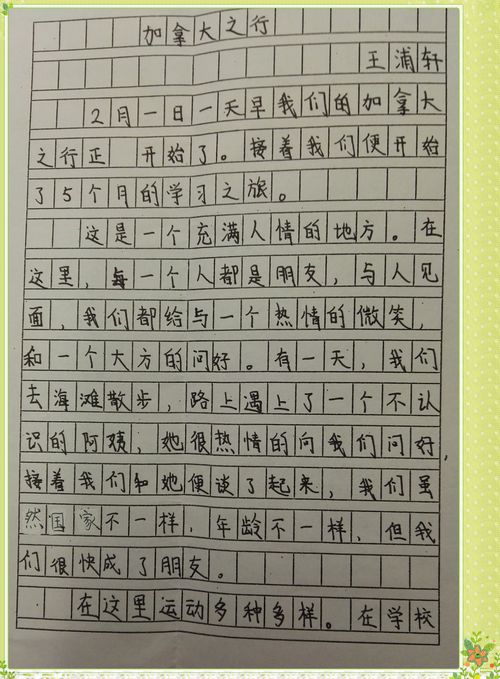 加拿大之行
王浦轩
2月一日一天早我们的加拿大
之行正 开始了。接着我们便开始
了5个月的学习之旅。
这是一个充满人情的地方。在
这里，每一个人都是朋友，与人见
面，我们都给与一个热情的微笑，
和一个大方的问好。有一天，我们
去海滩散步，路上遇上了一个不认
识的阿姨，她很热情的向我们问好，
接着我们和她便谈了起来，我们虽
然国家不一样，年龄不一样，但我
们很快成了朋友。
在这里运动多种多样。在学校